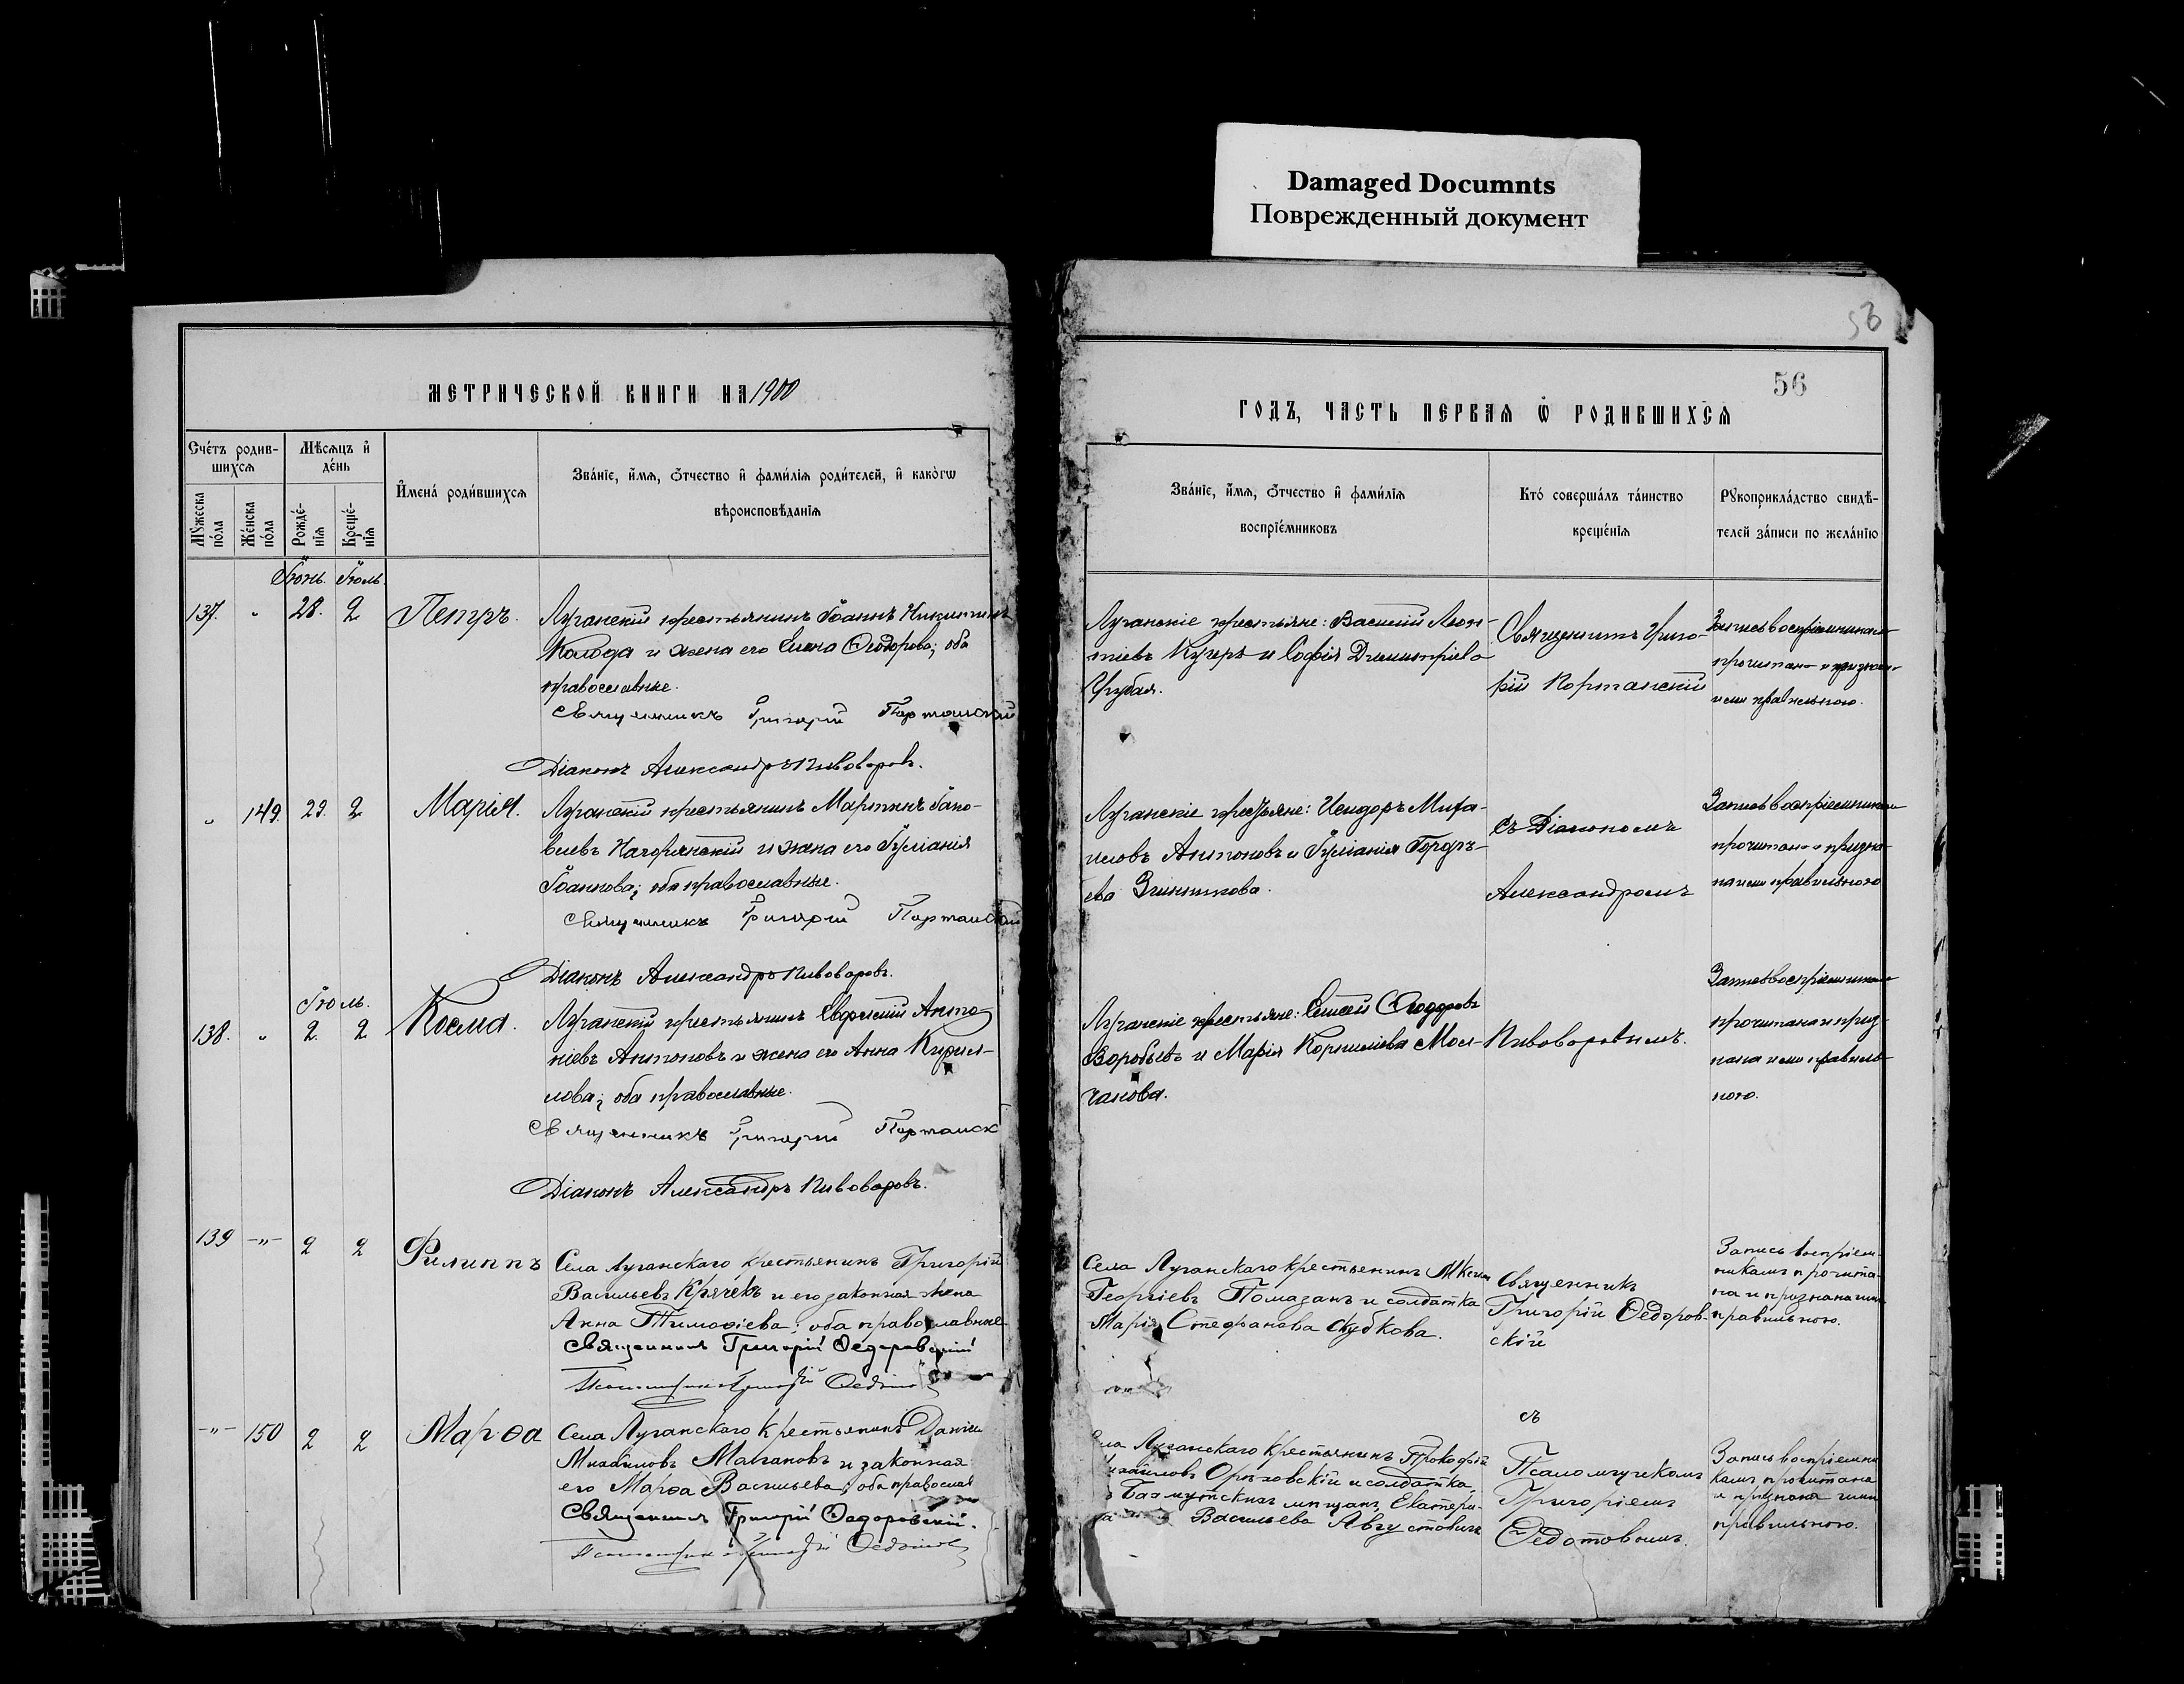 Damaged Documnts
Поврежденный документ
56
56
МЕТРИЧЕСКОЙ КНИГИ НА 1900
ГОДЪ, ЧАСТЬ ПЕРВАЯ Ѡ РОДИВШИХСЯ
Счетъ родив-
шихся
Мѣсяцъ и
день
Мужеска
пола
Женска
пола
Рожде-
нія
Креще-
нія
Имена родившихся
Званіе, имя, отчество и фамилія родителей, и какогω
вѣроисповѣданія
Званіе, имя, отчество и фамилія
воспріемниковъ
Кто совершалъ таинство
крещенія
Рукоприкладство свидѣ-
телей записи по желанію
Іюнь. Іюль.
137. " 28. 2 Петръ.
Луганскій крестьянинъ Іоаннъ Никитинъ
Колода и жена его Елена Ѳеодорова; оба
православные.
Священникъ Григорій Портанскій
Діаконъ Александръ Пивоваровъ.
Луганскіе крестьяне: Василій Леон-
тіевъ Кучеръ и Софія Димитріева
Священникъ Григо-
рій Портанскій
Запись воспріемникамъ
прочитана и признана
ими правильною.
" 149. 29. 2 Марія.
Луганскій крестьянинъ Мартинъ Іако-
влевъ Нагорянскій и жена его Іуліанія
Іоаннова; оба православные.
Священникъ Григорій Портанскій
Діаконъ Александръ Пивоваровъ.
Луганскіе крестьяне: Исидоръ Миха-
иловъ Антоновъ и Іуліанія
съ Діакономъ
Александромъ
Запись воспріемникамъ
прочитана и призна-
на ими правильною
Іюль.
138. " 2. 2 Косма.
Луганскій крестьянинъ Евфимій Анто-
ніевъ Антоновъ и жена его Анна Кирил-
лова; оба православные.
Священникъ Григорій Портанск
Діаконъ Александръ Пивоваровъ.
Луганскіе крестьяне: Елисей Ѳеодоровъ
Воробьевъ и Марія Корнилиева Мол-
чанова.
Пивоваровымъ.
Запись воспріемникамъ
прочитана и приз-
нана ими правиль-
ною.
139 -"- 2 2 Филиппъ
Села Луганскаго крестьянинъ Григорій
Васильевъ Крячекъ и его законная жена
Анна Тимоѳіева; оба православные
Священникъ Григорій Ѳедоровскій
Села Луганскаго крестьянинъ
Георгіевъ Помазанъ и солдатка
Марія Стефанова Скубкова.
Священникъ
Григорій Ѳедоров-
скій
Запись воспріем-
никамъ прочита-
на и признана ими
правильною.
-"- 150 2 2 Марѳа
Села Луганскаго крестьянинъ Даніи
Михаиловъ Малановъ и законная
его Марѳа Васильева; оба православ
Священникъ Григорій Ѳедоровскій.
Луганскаго крестьянинъ Прокофій
Михаиловъ Орѣховскій и солдатка
Бахмутскихъ мѣщанъ, Екатери-
на Васильева Августовичъ
съ
Псаломщикомъ
Григоріемъ
Ѳедотовымъ.
Запись воспріемни
камъ прочитана
и признана ими
правильною.